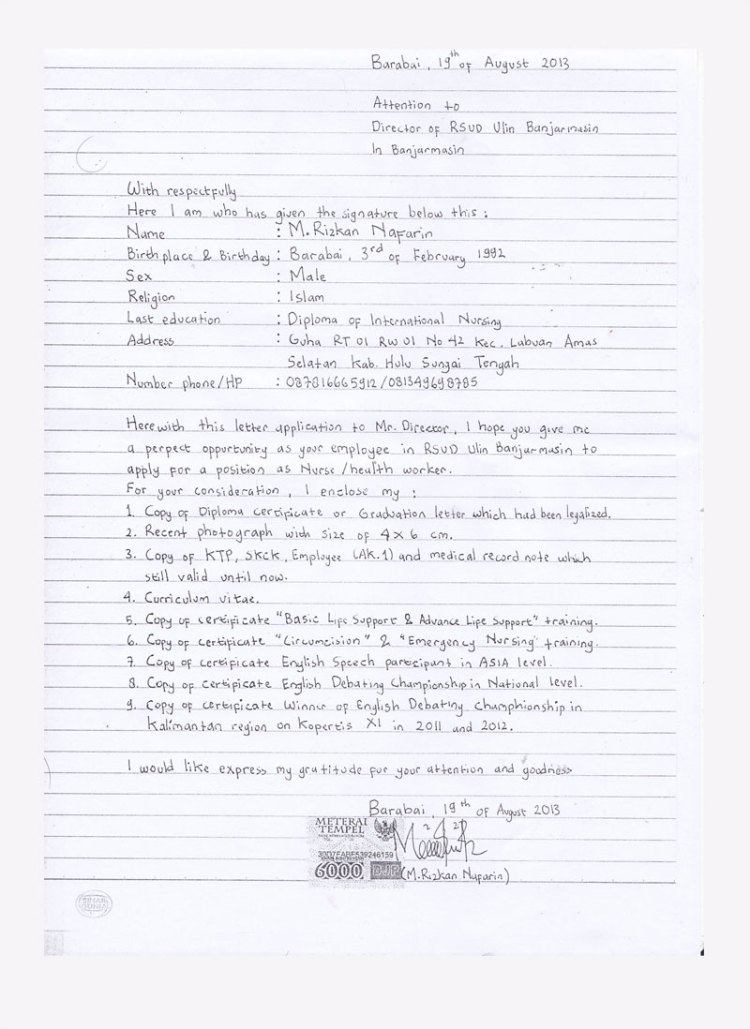 Barabai, 19th of August 2013
Attention to
Director of RSUD Ulin Banjarmasin
In Banjarmasin
With respectfully
Here I am who has given the signature below this :
Name : M. Rizkan Nafarin
Birth place & Birthday : Barabai, 3rd of February 1992
Sex : Male
Religion : Islam
Last education : Diploma of International Nursing
Address : Guha RT 01 RW 01 No 42 Kec. Labuan Amas
Selatan Kab. Hulu Sungai Tengah
Number phone/HP : 087816665912 /081349698785
Herewith this letter application to Mr. Director, I hope you give me
a perpect oppurtunity as your employee in RSUD Ulin Banjarmasin to
apply for a position as Nurse /health worker.
For your consideration, I enclose my :
1. Copy of Diploma certificate or Graduation letter which had been legalized.
2. Recent photograph with size of 4 x 6 cm.
3. Copy of KTP, SKCK, Employee (AK.1) and medical record note which
still valid until now.
4. Curriculum vitae.
5. Copy of certificate "Basic Life Support & Advance Life Support" training.
6. Copy of certificate "Circumcision" & "Emergency Nursing" training.
7. Copy of certificate English Speech participant in ASIA level.
8. Copy of certificate English Debating Championship in National level.
9. Copy of certificate Winner of English Debating Champhionship in
Kalimantan region on Kopertis XI in 2011 and 2012.
I would like express my gratitude for your attention and goodness
Barabai, 19th of August 2013
METERAI
TEMPEL
6000 DJP
(M. Rizkan Nafarin)
SINAR
DUNIA